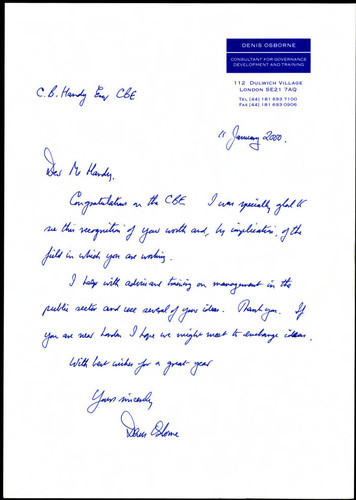 DENIS OSBORNE
CONSULTANT FOR GOVERNANCE
DEVELOPMENT AND TRAINING
112 DULWICH VILLAGE
LONDON SE21 7AQ
TEL (44) 181 693 7100
FAX (44) 181 693 0906
C.B. Handy Esq CBE
11 January 2000.
Dear Mr Handy,
Congratulations on the CBE. I was specially glad to
see this recognition of your worth and, by implication, of the
field in which you are working.
I help with advice and training on management in the
public sector and use several of your ideas. Thank you. If
you are near London I hope we might meet to exchange ideas.
With best wishes for a great year
Yours sincerely
Denis Osborne